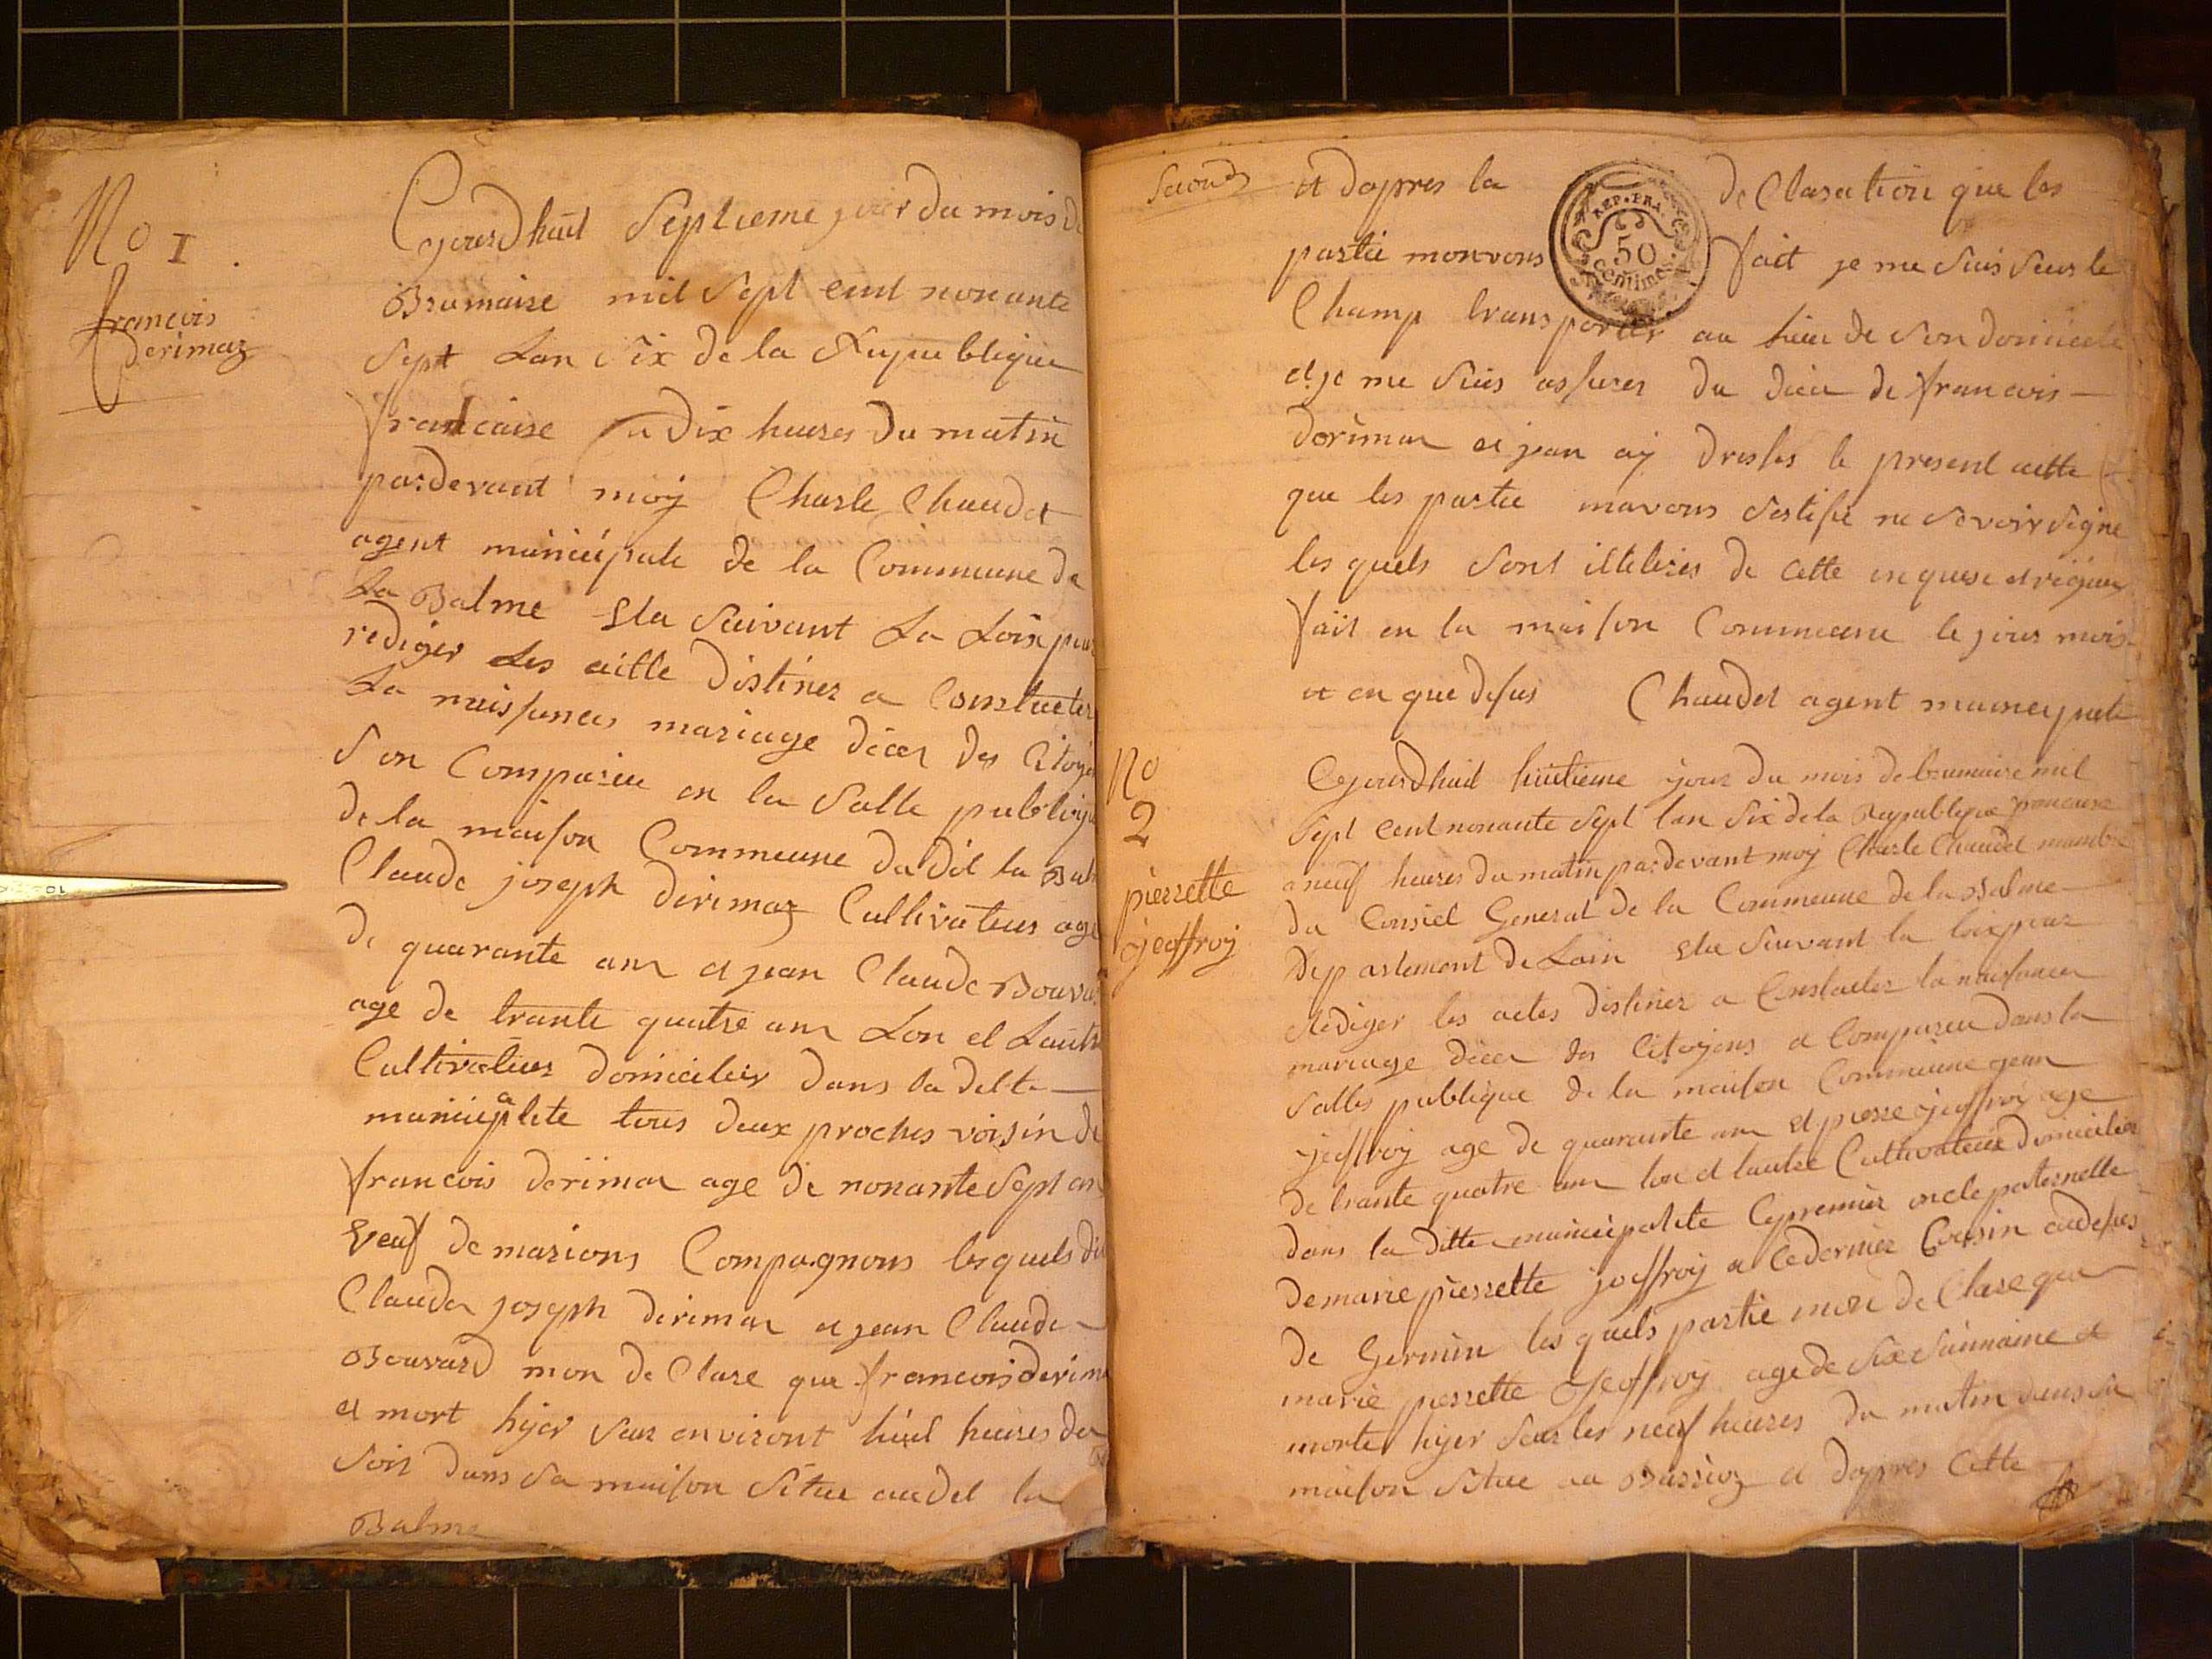 No 1
francois
derimaz
Cejourdhuit Septieme jour du mois de
Brumaire mil Sept cent nonante
Sept Lan Six de la Republique
francaise a Dix heures Du matin
pardevant moy Charle Chaudet
agent municipale de la Commune de
La Balme Elu Suivant La Loix pour
rediger Les aitte Distinez a Constueter
La naissances mariage déces des Citoyen
Son Comparue en la Salle publiqu
de la maison Commeune du dit la Bal
Claude joseph derimaz Cultivateur age
de quarante ans et jean Claude Bouvar
age de trante quatre ans Lon et Lautr
Cultivateur domicilier dans la ditte
municipalite tous deux proches voisin de
francois derimaz age de nonante Sept an
veuf de marions Compagnons lesquels dit
Claude joseph derimaz et jean Claude
Bouvard mon de Clare que francois derima
et mort hyer sur environt huit heures du
Soir dans Sa maison Situe audit la
Balme
Second et dapres la de Claration que les
partie monvons fait je me Suis Seur le
Champ transporter au lieu de Son domicile
et je me Suis assurer du déces de francois
derimaz et jean ay dresses le present aitte
que les partie mavons Sertifie ne Savoir Signe
les quels Sont illeterés de cette enquise
fait en la maison Commeune le jour mois
et en que desus Chaudet agent municipale
REP. FRA.
50
Centimes
No
2
pierrette
jeoffroy
Cejourdhuit huitieme jour du mois de brumaire mil
Sept cent nonante Sept lan Six de la Republique francaise
a neuf heures du matin pardevant moy Charle Chaudet membre
du Consiel General de la Commeune de la Balme
Departement de Lain Elu Suivant la loix pour
Rediger les actes distinez a Constaeter la naissance
mariage déces des Citoyens a Comparu dans la
Salles publique de la maison Commeune jean
jeoffroy age de quarante ans et pierre jeoffroy age
de trante quatre ans lon et lautre Cultivateur domicilier
dans la ditte municipalite le premier oncle paternelle
de marie pierrette jeoffroy et le dernier Cousin audesus
de Germin les quels partie mon de Clare que
marie pierrette jeoffroy age de Six Sainmaine et
morte hyer Seur les neuf heures du matin dans sa
maison Situe au et dapres Cette